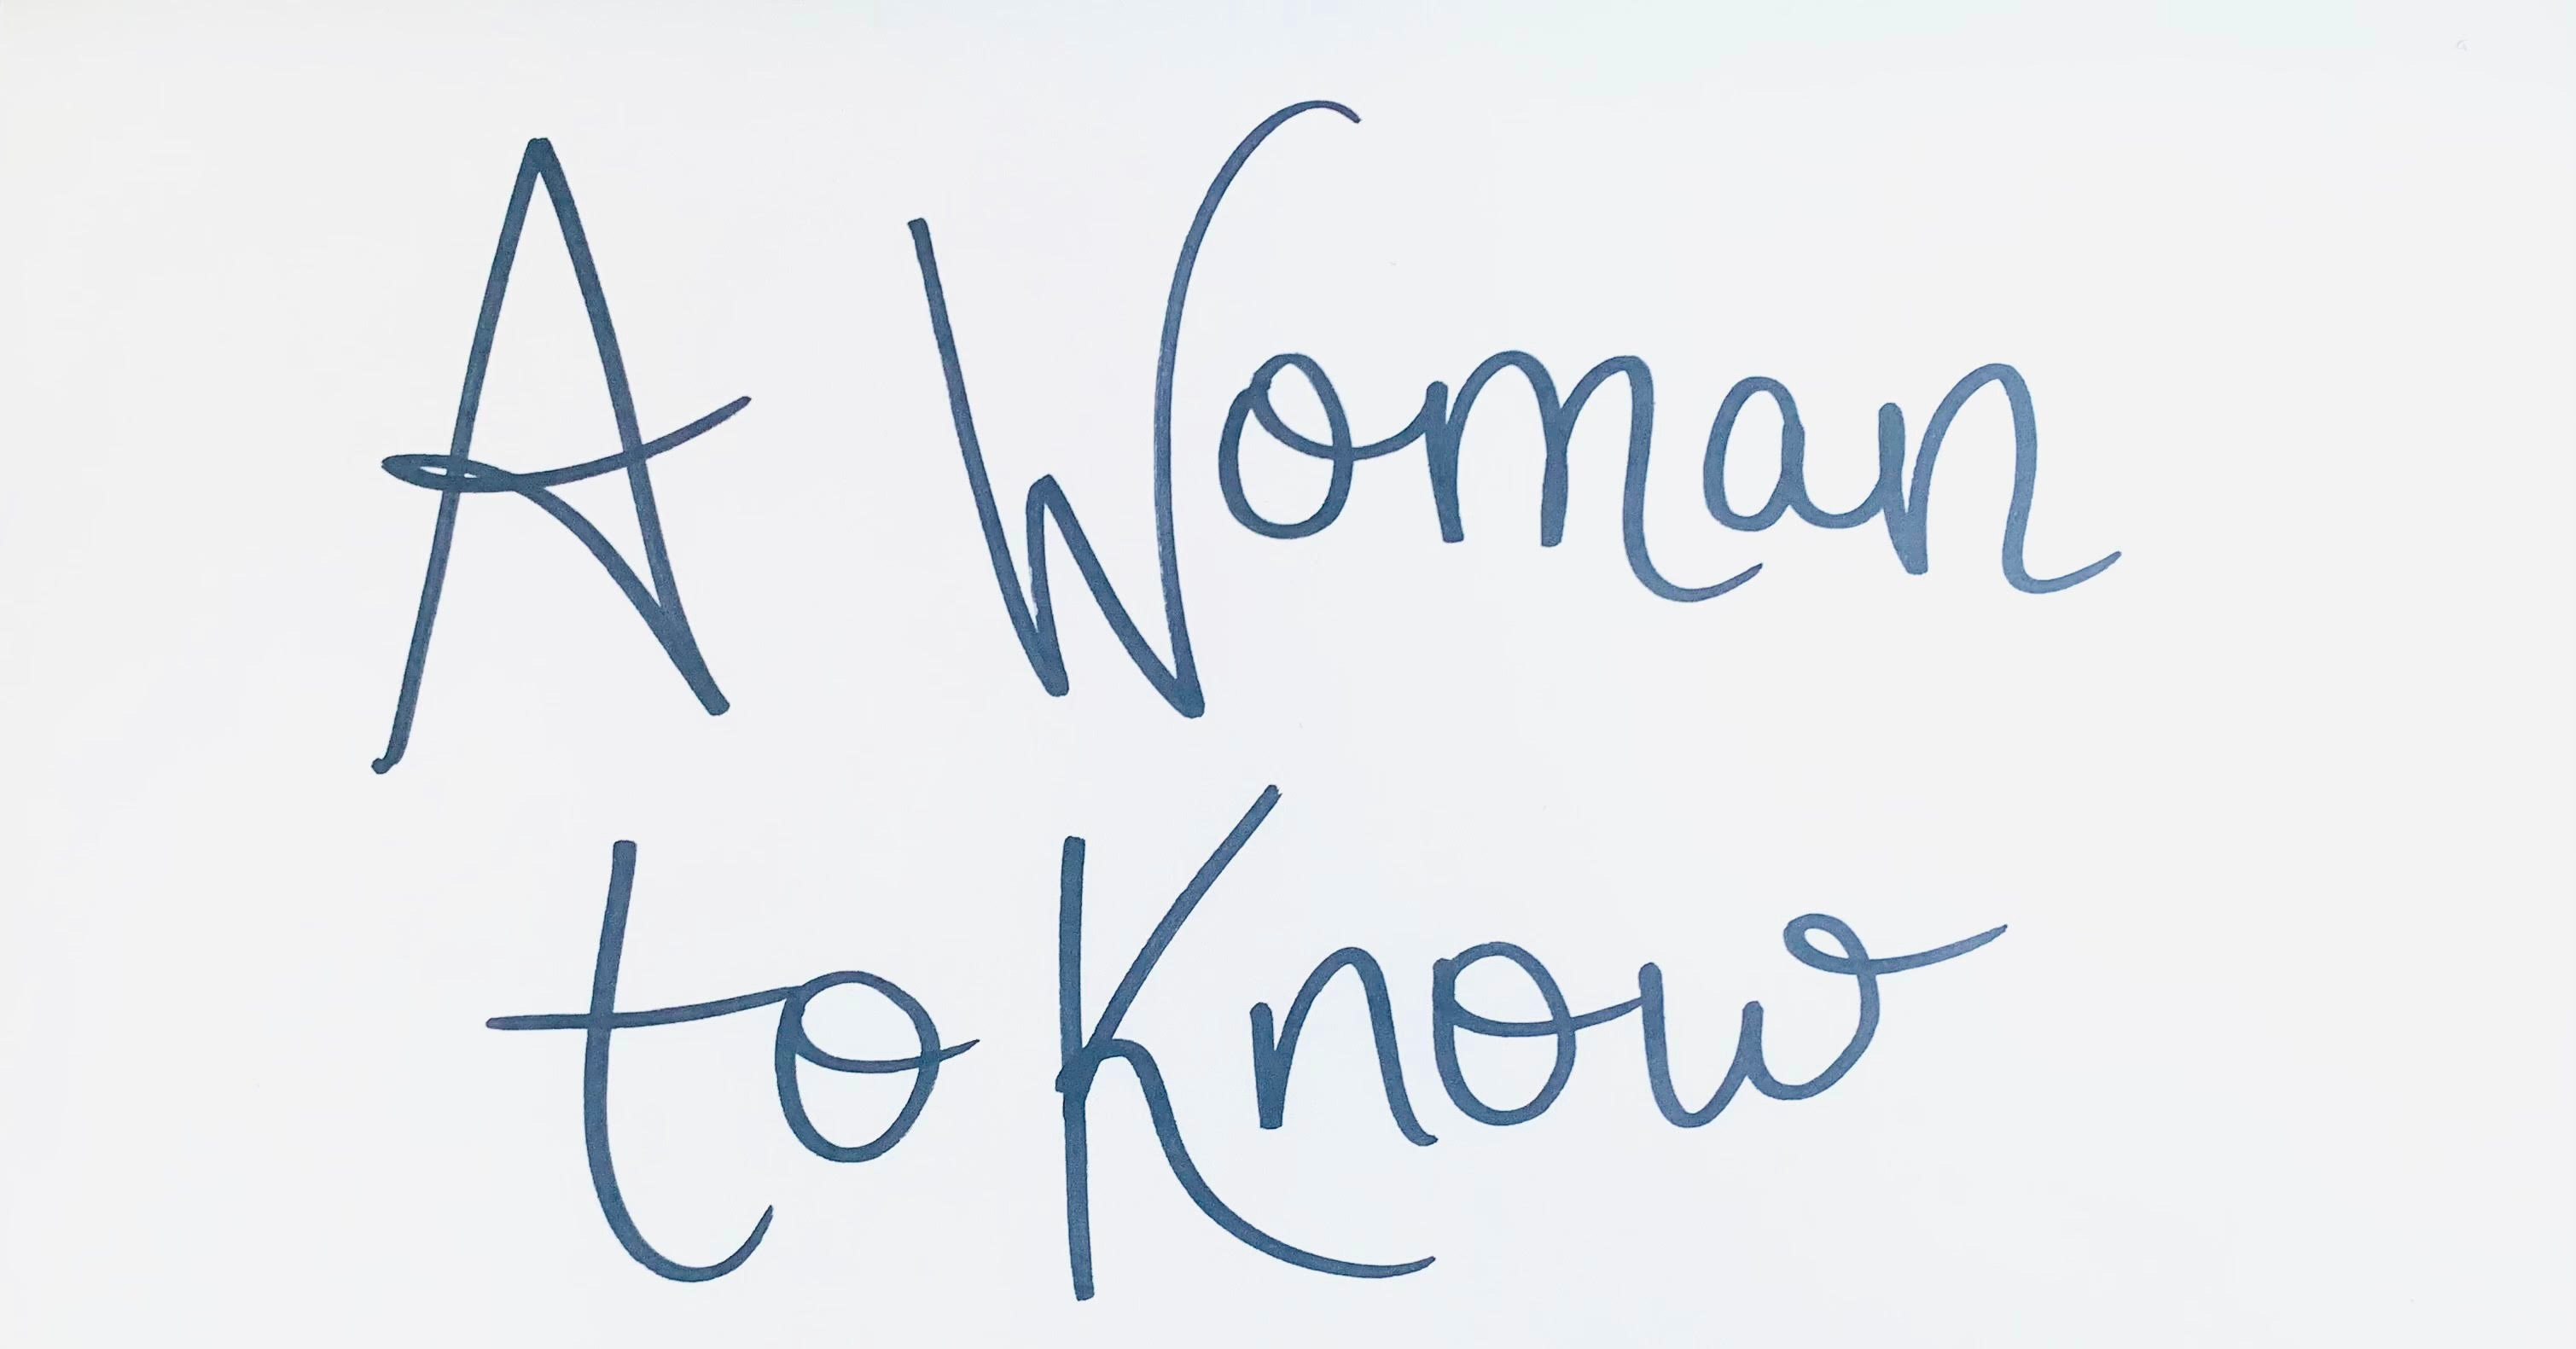 A Woman
to Know